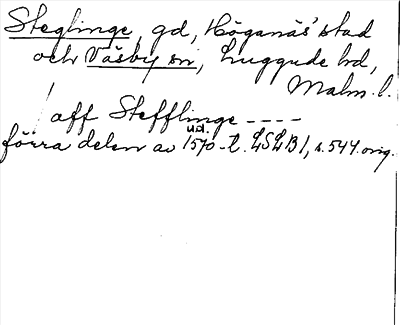 Steglinge, gd, Höganäs' stad
och Väsby sn, Luggude hd,
Malm. l.
aff Stefflinge ----
u.d.
förra delen av 1570-t. LSLB 1, s. 544. orig.